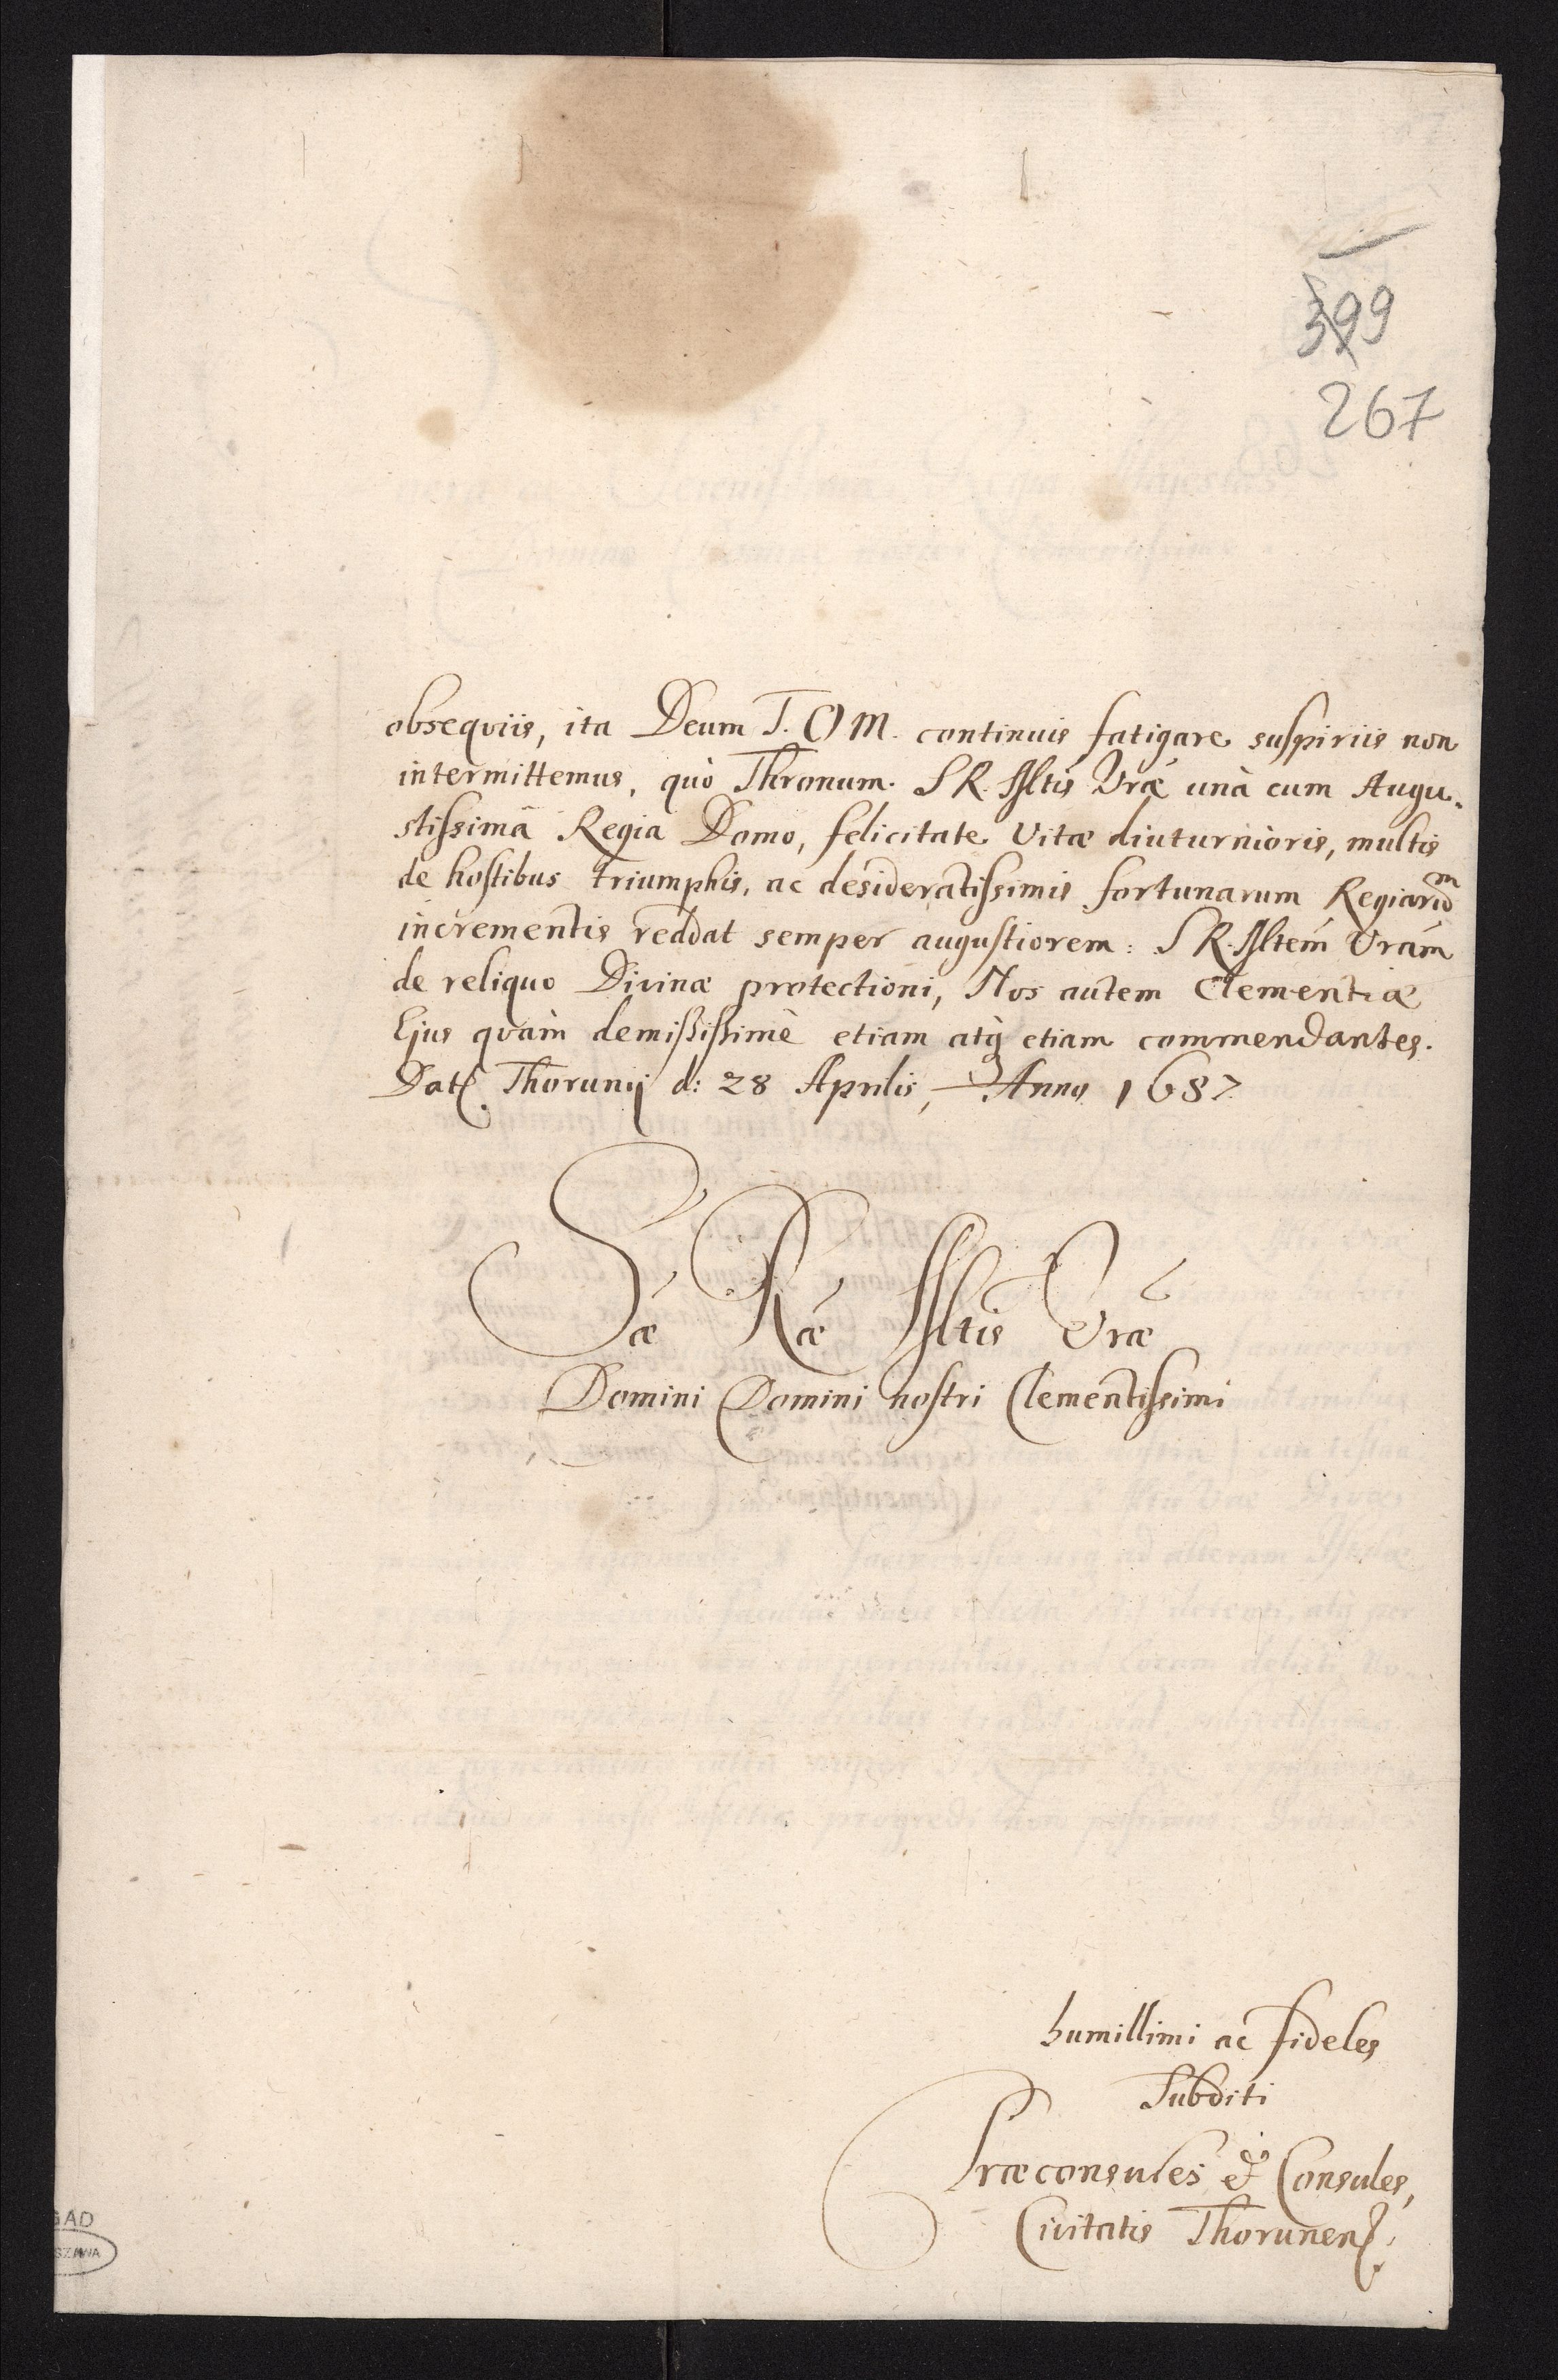 399
267
obsequiis, ita Deum T. O M. continuis fatigare suspiriis non
intermittemus, quò Thronum S R. Mltis Vræ unà cum Augu-
stissimâ Regia Domo, felicitate Vitæ diuturnioris, multis
de hostibus triumphis, ac desideratissimis fortunarum Regiarũm
incrementis reddat semper augustiorem: S R. Mltem Vram
de reliquo Divinæ protectioni, Nos autem Clementiæ
Ejus quàm demississimè etiam atq; etiam commendantes.
Dat. Thorunij d: 28 Aprilis, Anno 1687
Sæ Ræ Mltis Vræ
Domini Domini nostri Clementissimi
humillimi ac fideles
Subditi
Præconsules & Consules,
Civitatis Thorunens.
GAD
SZAWA